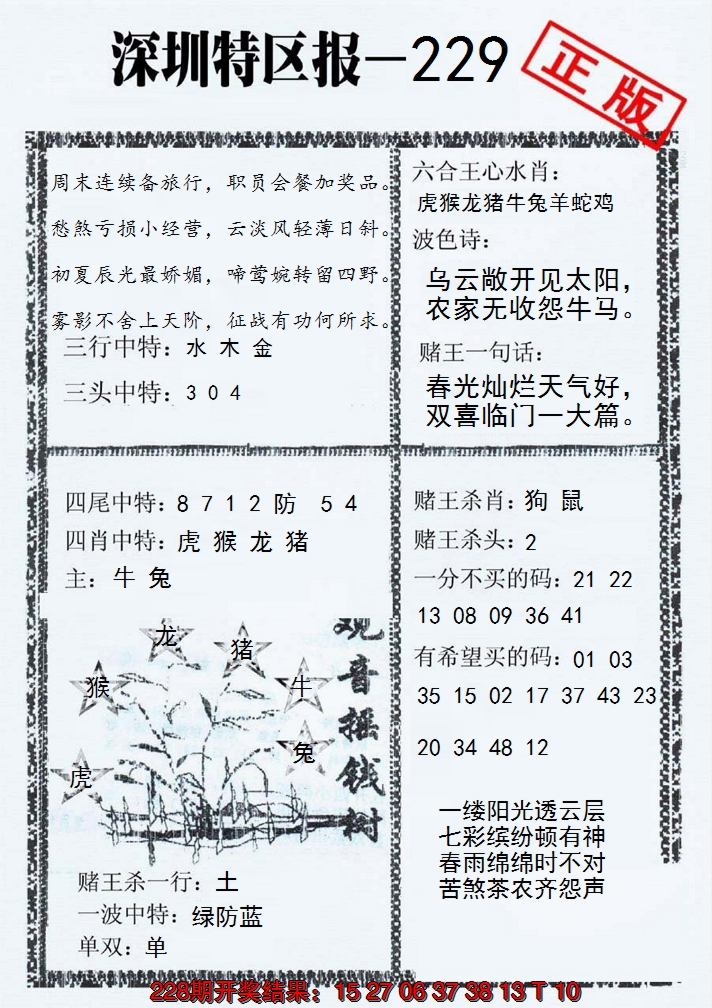 深圳特区报—229
正版
周末连续备旅行，职员会餐加奖品。
愁煞亏损小经营，云淡风轻薄日斜。
初夏辰光最娇媚，啼莺婉转留四野。
雾影不舍上天阶，征战有功何所求。
三行中特：水 木 金
三头中特：3 0 4
六合王心水肖：
虎猴龙猪牛兔羊蛇鸡
波色诗：
乌云敞开见太阳，
农家无收怨牛马。
赌王一句话：
春光灿烂天气好，
双喜临门一大篇。
四尾中特：8 7 1 2 防 5 4
四肖中特：虎 猴 龙 猪
主：牛 兔
龙
猪
猴
牛
兔
虎
观音摇钱树
赌王杀一行：土
一波中特：绿防蓝
单双：单
赌王杀肖：狗 鼠
赌王杀头：2
一分不买的码：21 22
13 08 09 36 41
有希望买的码：01 03
35 15 02 17 37 43 23
20 34 48 12
一缕阳光透云层
七彩缤纷顿有神
春雨绵绵时不对
苦煞茶农齐怨声
228期开奖结果：15 27 06 37 38 13 T 10